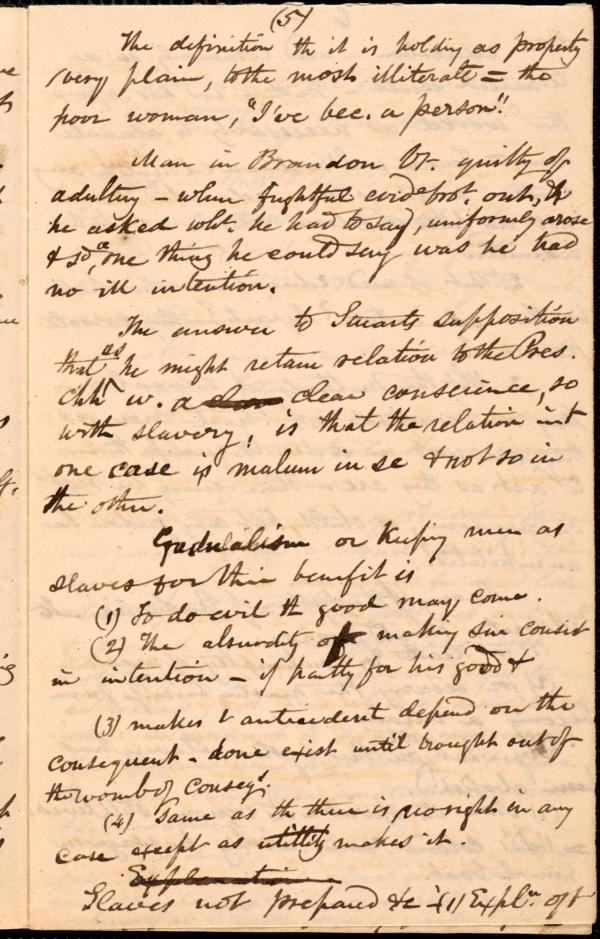 (5)
The definition th it is holding as property
very plain, to the most illiterate = the
poor woman, "I've bec. a person"!
Man in Brandon Vt. guilty of
adultery - when frightful evid
he asked wht. he had to say, uniformly arose
& sd, "one thing he could say was he had
no ill intention.
The answer to Stuarts supposition
that as he might retain relation to the Pres.
Chh w. a clear conscience, so
with slavery, is that the relation in t
one case is malum in se & not so in
the other.
Gradualism or Keeping men as
slaves for their benefit is
(1) To do evil th good may come.
(2) The absurdity of making sin consist
in intention - if partly for his good &
(3) makes t antecedent depend on the
consequent - done exist until brought out of
the womb of conseqs.
(4) Same as th there is no right in any
case except as utility makes it
Explanation
Slaves not prepared &c - (1) Expln of t